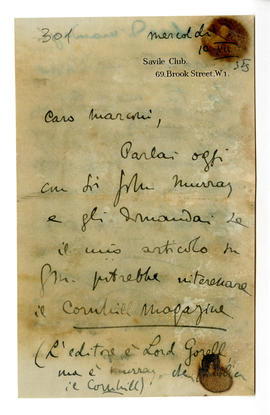 301
mercoldì
10 VII
Savile Club.
69, Brook Street, W1.
Caro Marconi,
Parlai oggi
con Sir John Murray
e gli domandai se
il mio articolo su
potrebbe interessare
il Cornhill Magazine
(L'editore è Lord Gorell,
ma è Murray,
il Cornhill).